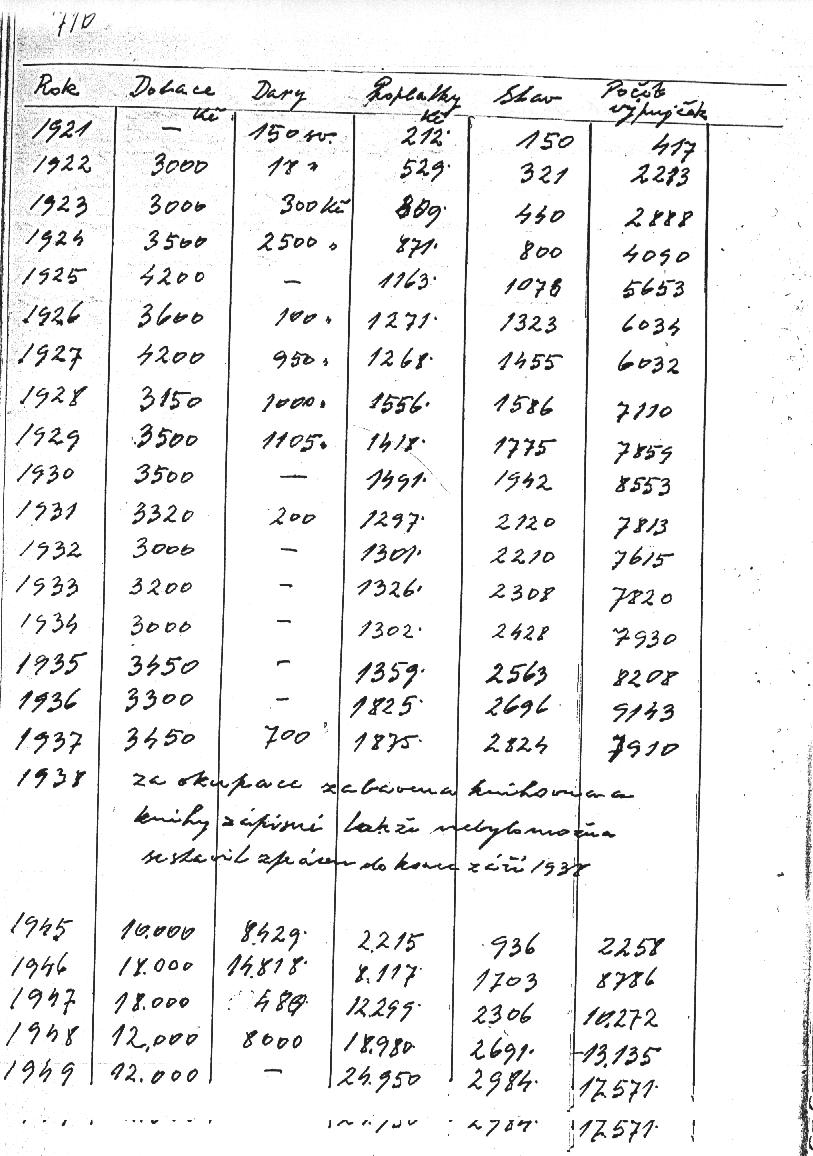 710
Rok Dotace Kč Dary Poplatky Kč Stav Počet výpujček
1921 — 150 sv. 212· 150 417
1922 3000 18 " 529· 321 2283
1923 3000 300 Kč 440 2888
1924 3500 2500 " 871· 800 4090
1925 4200 — 1163· 1078 5653
1926 3600 100 " 1271· 1323 6034
1927 4200 950 " 1268· 1455 6032
1928 3150 1000 " 1556· 1586 7110
1929 3500 1105 " 1418· 1775 7859
1930 3500 — 1491· 1942 8553
1931 3320 200 1297· 2120 7813
1932 3000 — 1301· 2210 7615
1933 3200 — 1326· 2308 7820
1934 3000 — 1302· 2428 7930
1935 3450 — 1359· 2563 8208
1936 3300 — 1825· 2696 9143
1937 3450 700 1875· 2824 7910
1938 za okupace zabavena knihovna a
knihy zápisní takže nebylo možna
sestavit zprávu do konce září 1938
1945 10.000 8429· 2.215 936 2258
1946 18.000 14.818· 8.117 1703 8786
1947 18.000 480 12.299· 2306 10.272
1948 12,000 8000 18.980· 2691· 13.135
1949 12.000 — 24.950 2984· 17.571·
17.571·